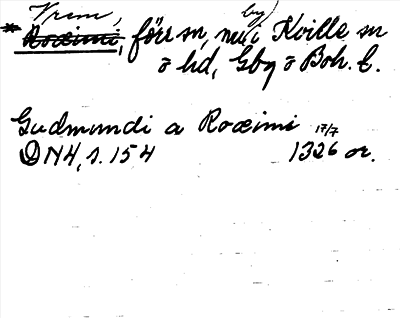 Vrem,
by
* Roximi, förr sn, nu i Kville sn
o hd, Gbg o Boh. l.
Gudmundi a Roximi 17/7
DN4, s. 154 1326 or.